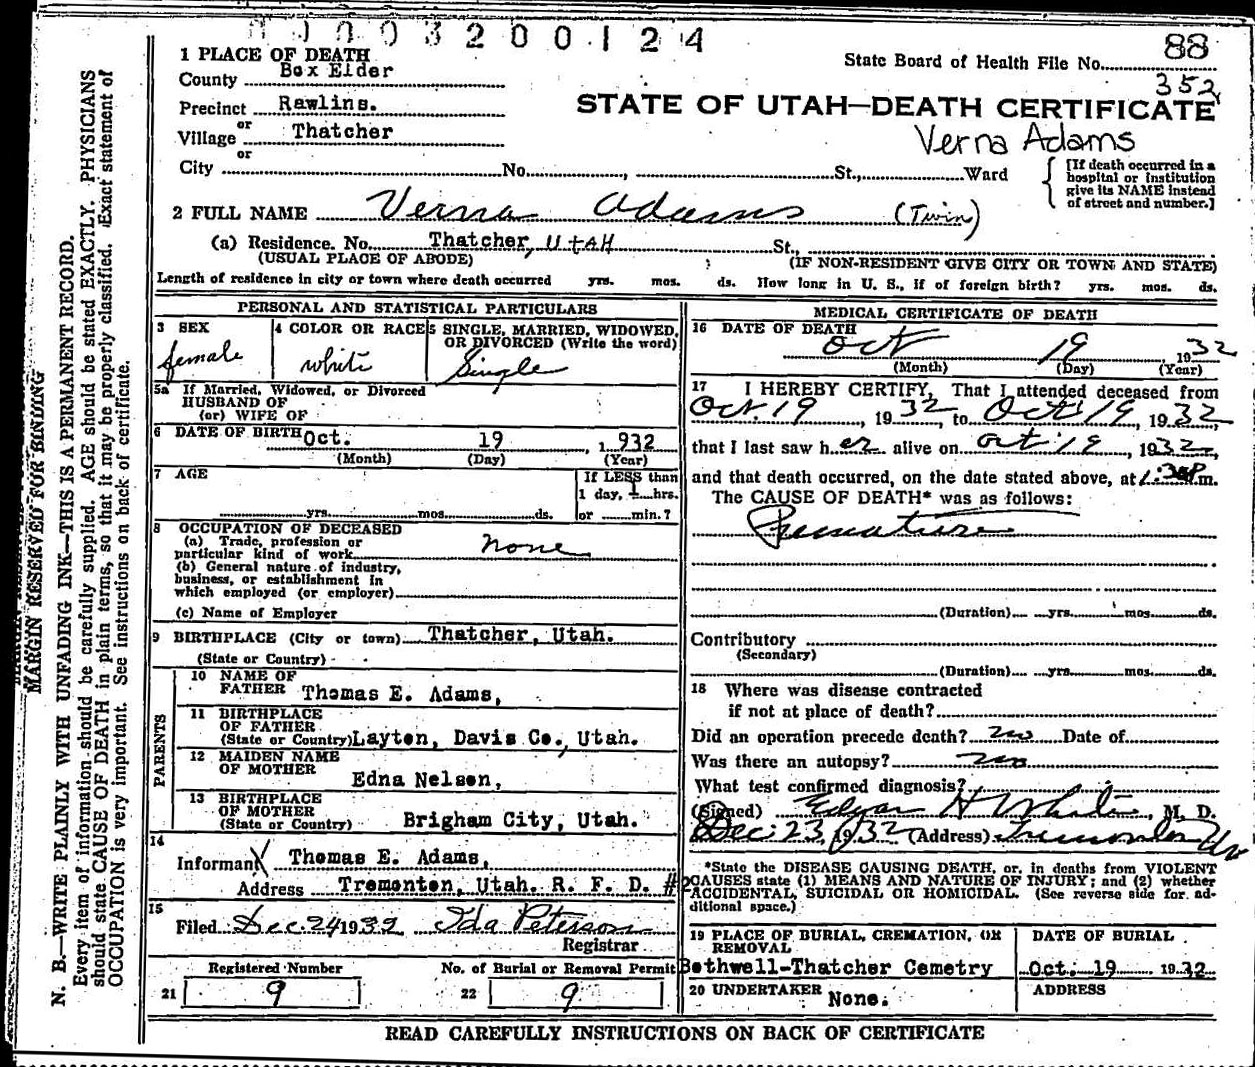 0003200124
88
State Board of Health File No.
352
1 PLACE OF DEATH
County Box Elder
Precinct Rawlins.
or
Village Thatcher
or
City No. , St., Ward
STATE OF UTAH—DEATH CERTIFICATE
Verna Adams
[If death occurred in a
hospital or institution
give its NAME instead
of street and number.]
2 FULL NAME Verna Adams (Twin)
(a) Residence. No. Thatcher, UtAH St.,
(USUAL PLACE OF ABODE) (IF NON-RESIDENT GIVE CITY OR TOWN AND STATE)
Length of residence in city or town where death occurred yrs. mos. ds. How long in U. S., if of foreign birth? yrs. mos. ds.
PERSONAL AND STATISTICAL PARTICULARS
3 SEX
female
4 COLOR OR RACE
white
5 SINGLE, MARRIED, WIDOWED,
OR DIVORCED (Write the word)
Single
5a If Married, Widowed, or Divorced
HUSBAND OF
(or) WIFE OF
6 DATE OF BIRTH Oct. 19 , 1932
(Month) (Day) (Year)
7 AGE
yrs. mos. ds.
If LESS than
1 day, 1 hrs.
or min.?
8 OCCUPATION OF DECEASED
(a) Trade, profession or
particular kind of work none
(b) General nature of industry,
business, or establishment in
which employed (or employer)
(c) Name of Employer
9 BIRTHPLACE (City or town) Thatcher, Utah.
(State or Country)
PARENTS
10 NAME OF
FATHER Thomas E. Adams,
11 BIRTHPLACE
OF FATHER
(State or Country) Layton, Davis Co., Utah.
12 MAIDEN NAME
OF MOTHER
Edna Nelson,
13 BIRTHPLACE
OF MOTHER
(State or Country) Brigham City, Utah.
14
Informant X Thomas E. Adams,
Address Tremonton, Utah. R. F. D. #2
15
Filed Dec. 24 1932 Ida Peterson
Registrar
Registered Number
21 9
No. of Burial or Removal Permit
22 9
MEDICAL CERTIFICATE OF DEATH
16 DATE OF DEATH
Oct 19 , 1932
(Month) (Day) (Year)
17 I HEREBY CERTIFY, That I attended deceased from
Oct. 19 , 1932, to Oct. 19, 1932,
that I last saw her alive on Oct. 19 , 1932,
and that death occurred, on the date stated above, at m.
The CAUSE OF DEATH* was as follows:
Premature
(Duration) yrs. mos. ds.
Contributory
(Secondary)
(Duration) yrs. mos. ds.
18 Where was disease contracted
if not at place of death?
Did an operation precede death? no Date of
Was there an autopsy? no
What test confirmed diagnosis?
(Signed) Edgar H White, M. D.
Dec. 23, 1932 (Address) Tremonton Ut
*State the DISEASE CAUSING DEATH, or, in deaths from VIOLENT
CAUSES state (1) MEANS AND NATURE OF INJURY; and (2) whether
ACCIDENTAL, SUICIDAL OR HOMICIDAL. (See reverse side for ad-
ditional space.)
19 PLACE OF BURIAL, CREMATION, OR
REMOVAL
Bothwell-Thatcher Cemetry
DATE OF BURIAL
Oct. 19 1932
20 UNDERTAKER None.
ADDRESS
READ CAREFULLY INSTRUCTIONS ON BACK OF CERTIFICATE
MARGIN RESERVED FOR BINDING
N. B.—WRITE PLAINLY WITH UNFADING INK—THIS IS A PERMANENT RECORD.
Every item of information should be carefully supplied. AGE should be stated EXACTLY. PHYSICIANS
should state CAUSE OF DEATH in plain terms, so that it may be properly classified. Exact statement of
OCCUPATION is very important. See instructions on back of certificate.